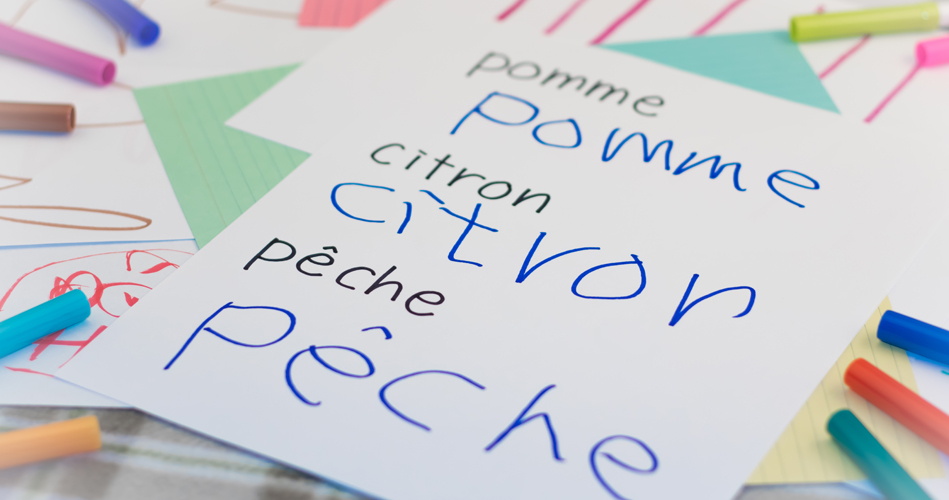 pomme
pomme
citron
citron
pêche
pêche